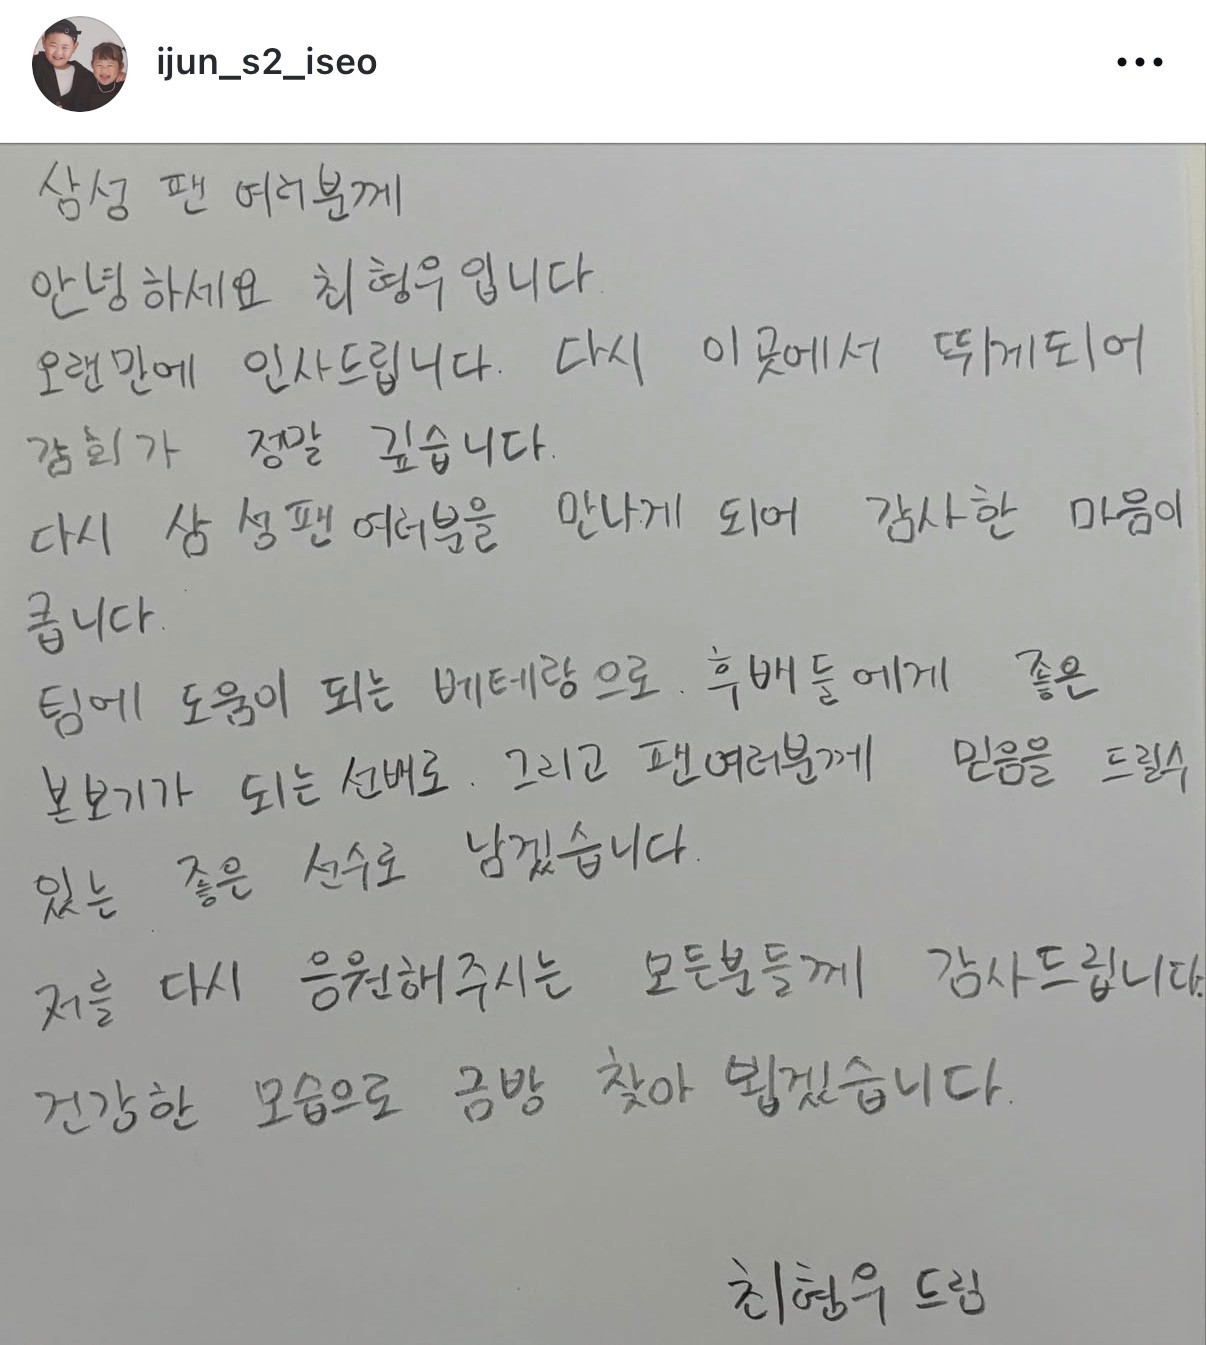 ijun_s2_iseo
삼성 팬 여러분께
안녕하세요 최형우입니다.
오랜만에 인사드립니다. 다시 이곳에서 뛰게되어
감회가 정말 깊습니다.
다시 삼성팬여러분을 만나게 되어 감사한 마음이
큽니다.
팀에 도움이 되는 베테랑으로. 후배들에게 좋은
본보기가 되는 선배로. 그리고 팬여러분께 믿음을 드릴수
있는 좋은 선수로 남겠습니다.
저를 다시 응원해주시는 모든분들께 감사드립니다.
건강한 모습으로 금방 찾아 뵙겠습니다.
최형우 드림